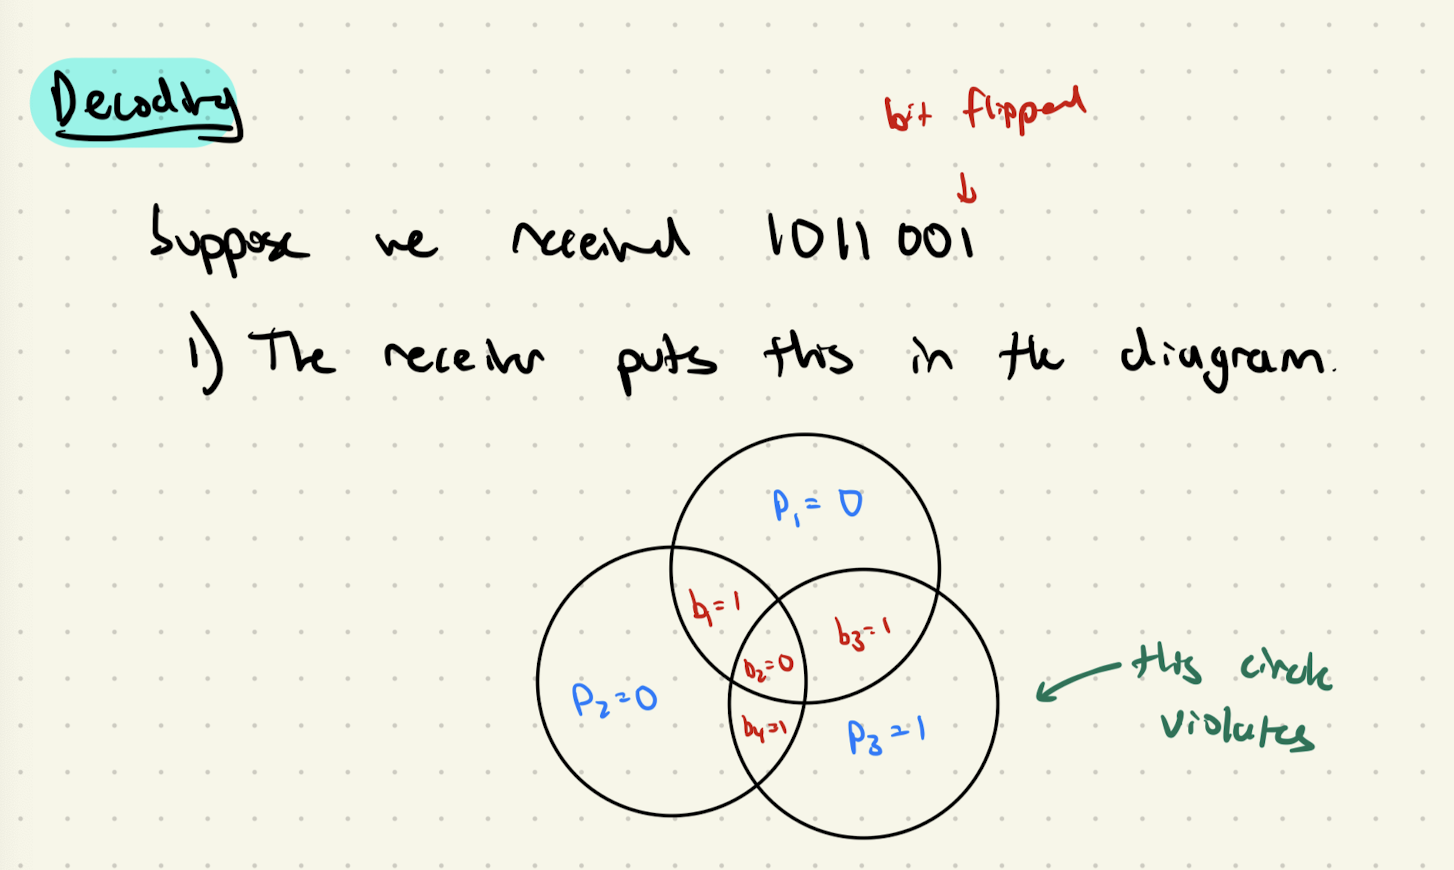 Decoding
bit flipped
↓
Suppose we received 1011 001
1) The receiver puts this in the diagram.
P₁ = 0
b₁ = 1
b₃ = 1
b₂ = 0
P₂ = 0
b₄ = 1
P₃ = 1
this circle
violates